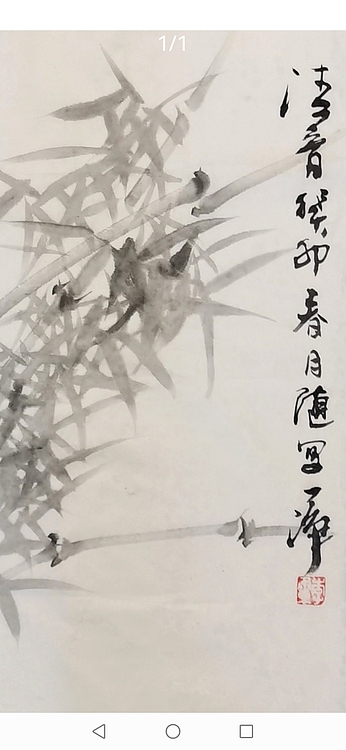 1/1
清音癸卯春月随写一萍